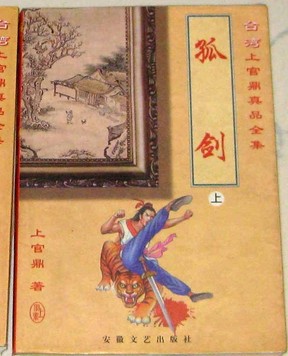 台湾上官鼎真品全集
孤剑
上
上官鼎 著
安徽文艺出版社
台湾上官鼎真品全集